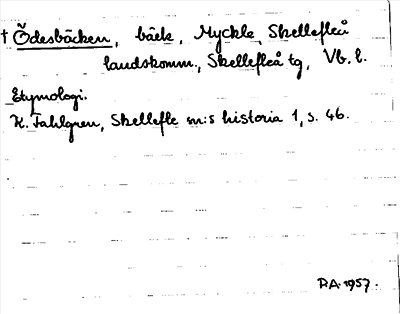 † Ödesbäcken, bäck, Myckle, Skellefteå
landskomm., Skellefteå tg, Vb. l.
Etymologi.
K. Fahlgren, Skellefte sn:s historia 1, s. 46.
P.A. 1957.